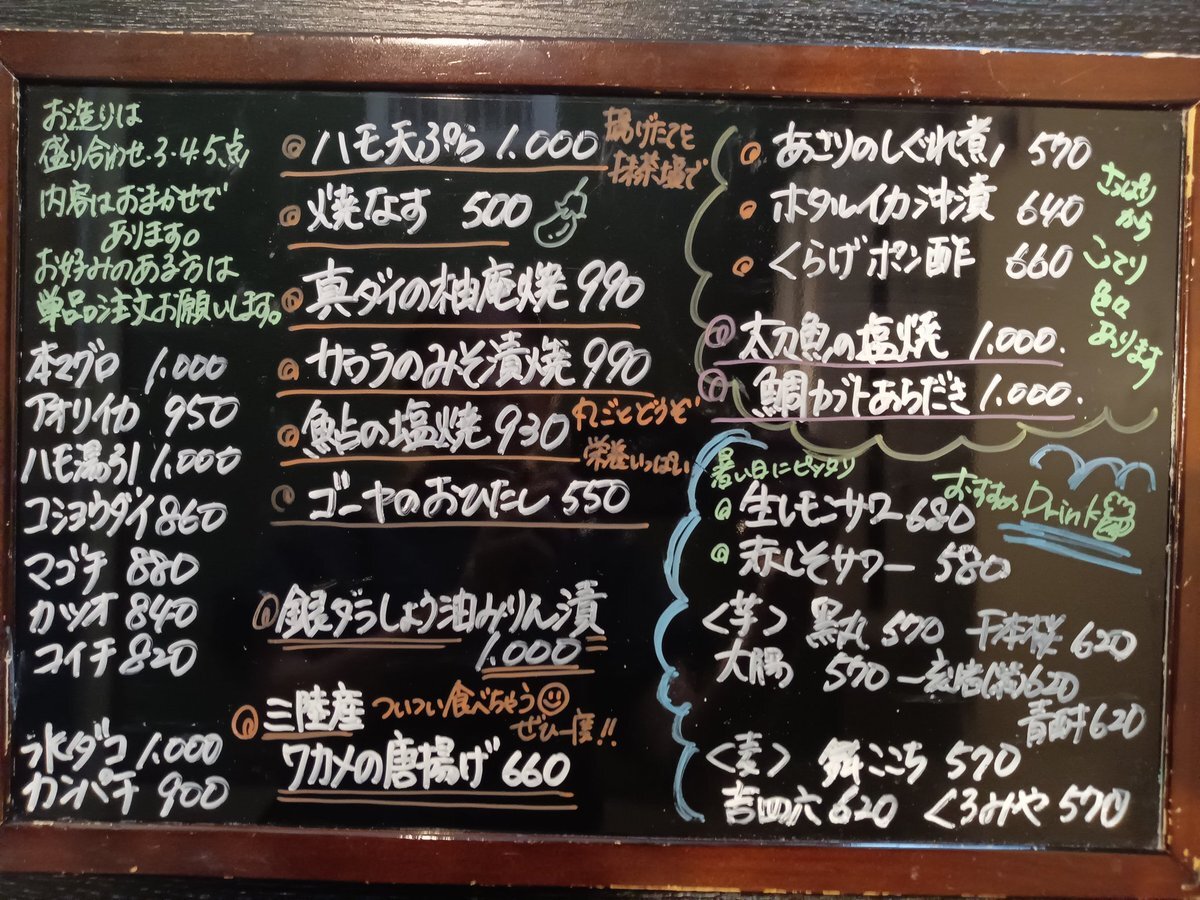 お造りは
盛り合わせ・3・4・5点
内容はおまかせで
あります。
お好みのある方は
単品ご注文お願いします。
本マグロ 1.000
アオリイカ 950
ハモ湯引 1.000
コショウダイ 860
マゴチ 880
カツオ 840
コイチ 820
水ダコ 1.000
カンパチ 900
ハモ天ぷら 1.000
揚げたてを
抹茶塩で
焼なす 500
真ダイの柚庵焼 990
サワラのみそ漬焼 990
鮎の塩焼 930
丸ごとどうぞ
栄養いっぱい
ゴーヤのおひたし 550
銀ダラしょう油みりん漬
1.000
三陸産
ついつい食べちゃう
ぜひ一度!!
ワカメの唐揚げ 660
あさりのしぐれ煮 570
ホタルイカ沖漬 640
くらげポン酢 660
さっぱり
から
こてり
色々
あります
太刀魚の塩焼 1.000.
鯛カブトあらだき 1.000.
暑い日にピッタリ
おすすめ Drink
生レモンサワー 680
赤しそサワー 580
<芋> 黒丸 570 千本桜 620
大腸 570 一刻者(紫) 620
青酎 620
<麦> 舞ここち 570
吉四六 620 くろみや 570